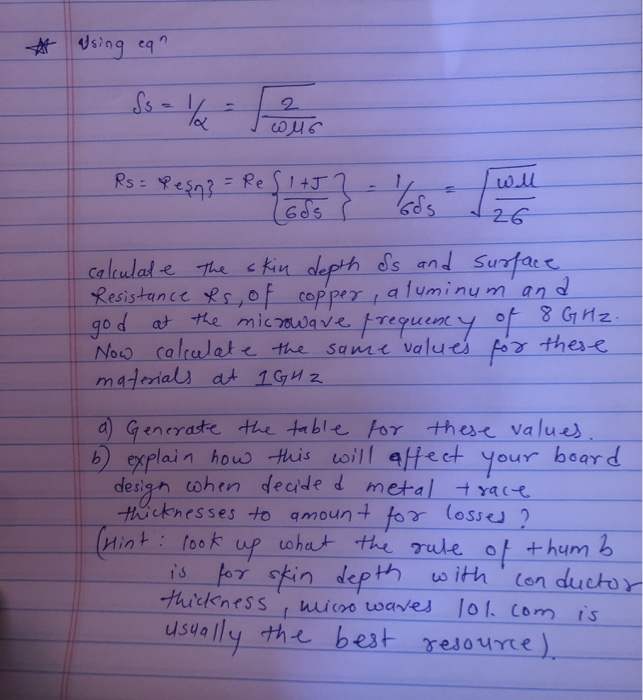 ☆ Using eqn
δs = 1/α = √(2/ωμσ)
Rs = Re{η} = Re {1+J/σδs} = 1/σδs = √(ωμ/2σ)
calculate The skin depth δs and Surface
Resistance Rs, of copper, aluminum and
god at the microwave frequency of 8 GHz.
Now calculate the same values for these
materials at 1GHz
a) Generate the table for these values.
b) explain how this will affect your board
design when decided metal trace
thicknesses to amount for losses?
(Hint: look up what the rule of thumb
is for skin depth with conductor
thickness, microwaves 101. com is
usually the best resource).